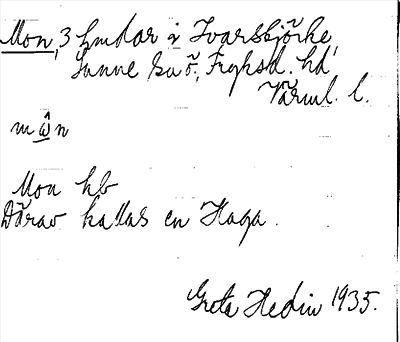 Mon, 3 hmdar i Ivarsbjörke,
Sunne sn ö., Fryksd. hd,
Värml. l.
mω̂n
Mon hb
Därav kallas en Haga.
Greta Hedin 1935.